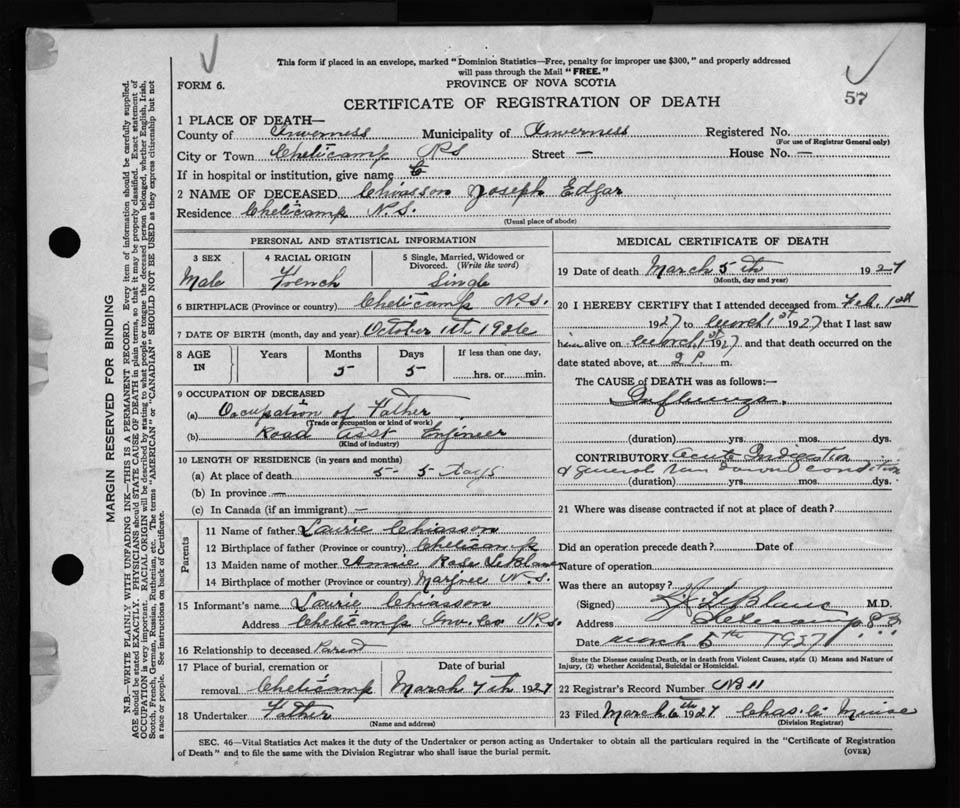 This form if placed in an envelope, marked "Dominion Statistics—Free, penalty for improper use $300," and properly addressed
will pass through the Mail "FREE."
FORM 6.
PROVINCE OF NOVA SCOTIA
57
CERTIFICATE OF REGISTRATION OF DEATH
1 PLACE OF DEATH—
County of Inverness Municipality of Inverness Registered No.
(For use of Registrar General only)
City or Town Cheticamp NS Street — House No. —
If in hospital or institution, give name
2 NAME OF DECEASED Chiasson Joseph Edgar
Residence Cheticamp N.S.
(Usual place of abode)
PERSONAL AND STATISTICAL INFORMATION
3 SEX 4 RACIAL ORIGIN 5 Single, Married, Widowed or
Divorced. (Write the word)
Male French Single
6 BIRTHPLACE (Province or country) Cheticamp N.S.
7 DATE OF BIRTH (month, day and year) October 1st, 1926
8 AGE IN Years Months Days If less than one day,
5 5 hrs. or min.
9 OCCUPATION OF DECEASED
(a) Occupation of Father
(Trade or occupation or kind of work)
(b) Road Asst Engineer
(Kind of industry)
10 LENGTH OF RESIDENCE (in years and months)
(a) At place of death 5 - 5 days
(b) In province —
(c) In Canada (if an immigrant) —
Parents
11 Name of father Laurie Chiasson
12 Birthplace of father (Province or country) Cheticamp
13 Maiden name of mother Annie Rose LeBlanc
14 Birthplace of mother (Province or country) Margree N.S.
15 Informant's name Laurie Chiasson
Address Cheticamp Inv. Co N.S.
16 Relationship to deceased Parent
17 Place of burial, cremation or Date of burial
removal Cheticamp March 7th 1927
18 Undertaker Father
(Name and address)
MEDICAL CERTIFICATE OF DEATH
19 Date of death March 5th 1927
(Month, day and year)
20 I HEREBY CERTIFY that I attended deceased from Feb. 1st
1927 to March 1st 1927 that I last saw
him alive on March 1st 1927 and that death occurred on the
date stated above, at 2 P. m.
The CAUSE of DEATH was as follows:—
Influenza.
(duration) yrs. mos. dys.
CONTRIBUTORY Acute Indigestion
& general run down condition
(duration) yrs. mos. dys.
21 Where was disease contracted if not at place of death?
Did an operation precede death? Date of
Nature of operation
Was there an autopsy?
(Signed) LeBlanc M.D.
Address Cheticamp
Date March 5th 1927
State the Disease causing Death, or in death from Violent Causes, state (1) Means and Nature of
Injury, (2) whether Accidental, Suicidal or Homicidal.
22 Registrar's Record Number No 11
23 Filed March 6th 1927 Chas. Muise
(Division Registrar)
SEC. 46—Vital Statistics Act makes it the duty of the Undertaker or person acting as Undertaker to obtain all the particulars required in the "Certificate of Registration
of Death" and to file the same with the Division Registrar who shall issue the burial permit. (OVER)
MARGIN RESERVED FOR BINDING
N.B.—WRITE PLAINLY WITH UNFADING INK—THIS IS A PERMANENT RECORD. Every item of information should be carefully supplied.
AGE should be stated EXACTLY. PHYSICIANS should STATE CAUSE OF DEATH in plain terms, so that it may be properly classified. Exact statement of
OCCUPATION is very important. RACIAL ORIGIN will be described by stating to what people or tongue the deceased person belonged, whether English, Irish,
Scotch, French, German, Russian, Ruthenian, etc. The terms "AMERICAN" or "CANADIAN" SHOULD NOT BE USED as they express citizenship but not
a race or people. See instructions on back of Certificate.